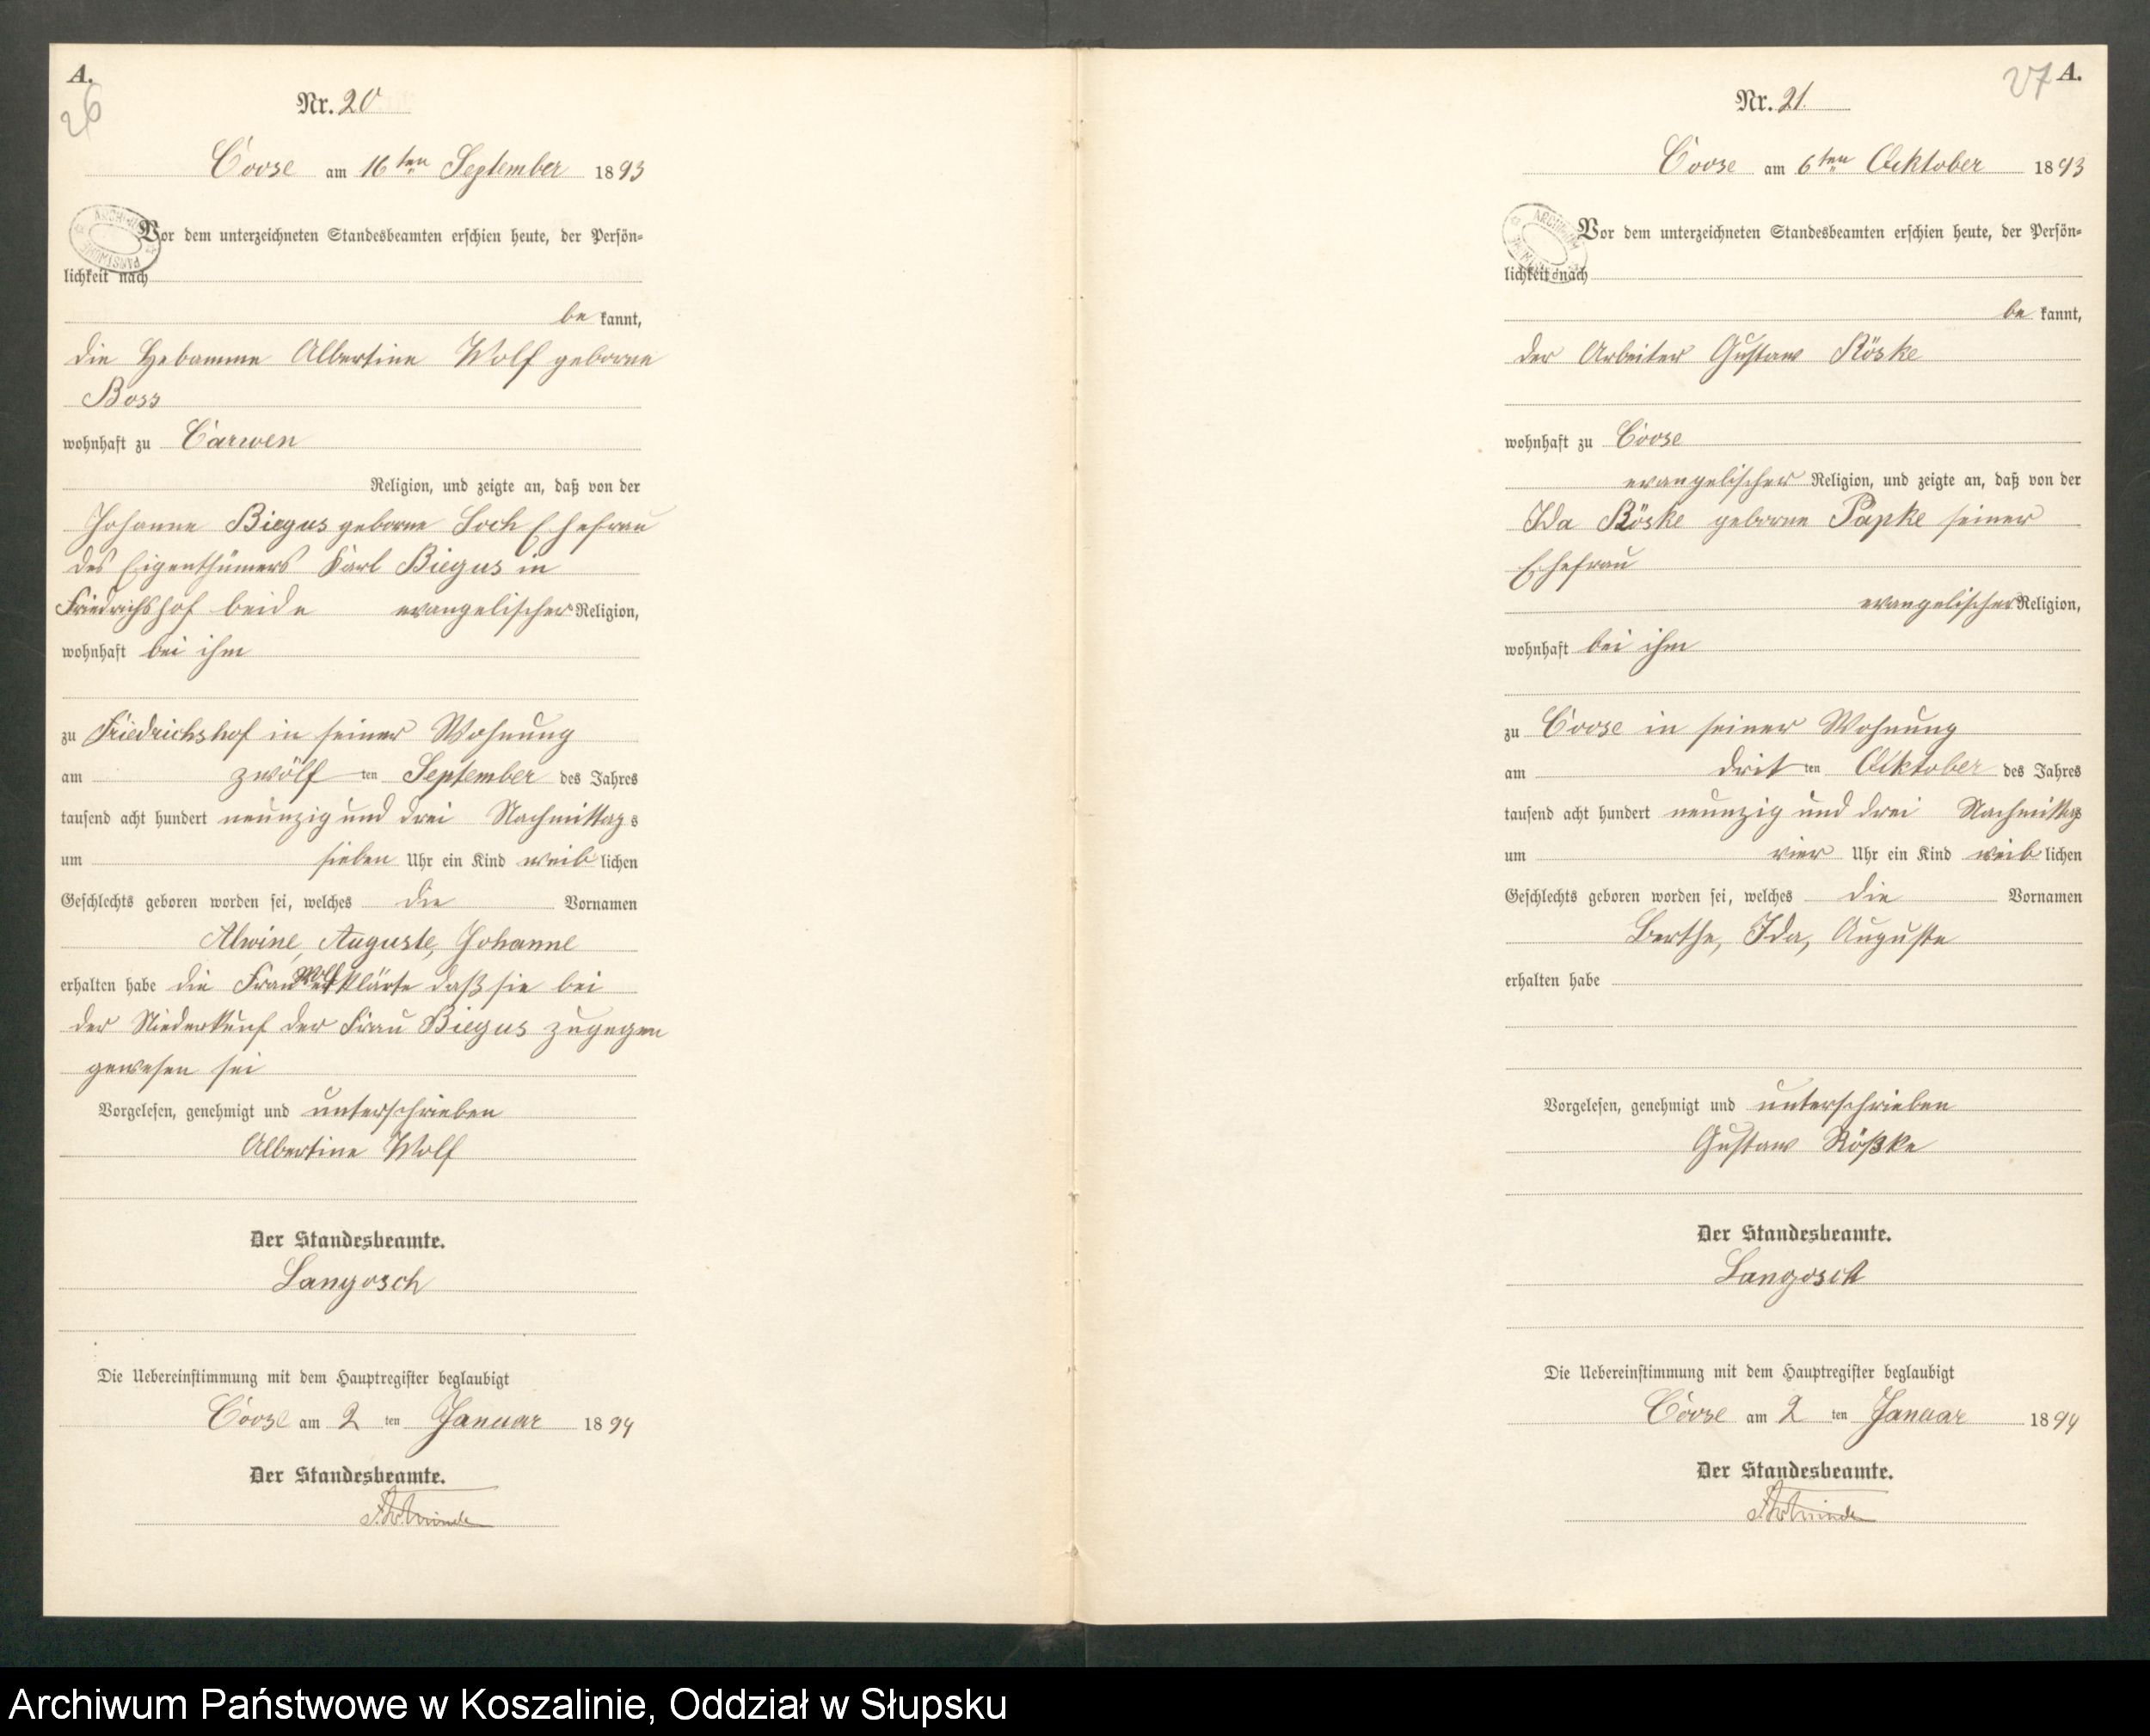 A.
26
Nr. 20
Coose am 16ten September 1893
Vor dem unterzeichneten Standesbeamten erschien heute, der Persön-
lichkeit nach
be kannt,
die Hebamme Albertine Wolf geborne
Boss
wohnhaft zu Carwen
Religion, und zeigte an, daß von der
Johanne Biegus geborne Loch Ehefrau
des Eigenthümers Karl Biegus in
Friedrichshof beide evangelischer Religion,
wohnhaft bei ihm
zu Friedrichshof in seiner Wohnung
am zwölf ten September des Jahres
tausend acht hundert neunzig und drei Nachmittags
um sieben Uhr ein Kind weib lichen
Geschlechts geboren worden sei, welches die Vornamen
Alwine, Auguste, Johanne
erhalten habe die Frau Wolf erklärte daß sie bei
der Niederkunf der Frau Biegus zugegen
gewesen sei
Vorgelesen, genehmigt und unterschrieben
Albertine Wolf
Der Standesbeamte.
Langosch
Die Uebereinstimmung mit dem Hauptregister beglaubigt
Coose am 2 ten Januar 1894
Der Standesbeamte.
A.
27
Nr. 21
Coose am 6ten Oktober 1893
Vor dem unterzeichneten Standesbeamten erschien heute, der Persön-
lichkeit nach
be kannt,
der Arbeiter Gustaw Röske
wohnhaft zu Coose
evangelischer Religion, und zeigte an, daß von der
Ida Röske geborne Papke seiner
Ehefrau
evangelischer Religion,
wohnhaft bei ihm
zu Coose in seiner Wohnung
am drit ten Oktober des Jahres
tausend acht hundert neunzig und drei Nachmittags
um vier Uhr ein Kind weib lichen
Geschlechts geboren worden sei, welches die Vornamen
Berthe, Ida, Auguste
erhalten habe
Vorgelesen, genehmigt und unterschrieben
Gustaw Rößke
Der Standesbeamte.
Langosch
Die Uebereinstimmung mit dem Hauptregister beglaubigt
Coose am 2 ten Januar 1894
Der Standesbeamte.
Archiwum Państwowe w Koszalinie, Oddział w Słupsku